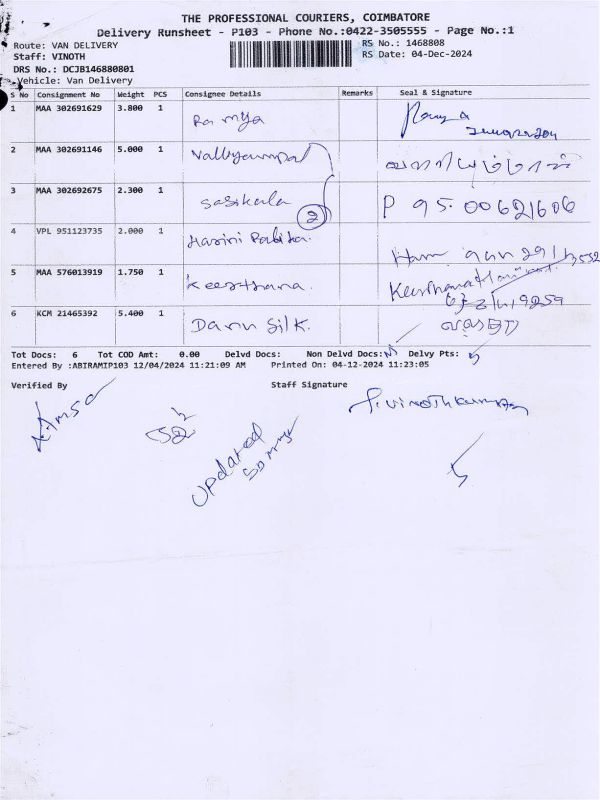 THE PROFESSIONAL COURIERS, COIMBATORE
Delivery Runsheet - P103 - Phone No.:0422-3505555 - Page No.:1
Route: VAN DELIVERY
RS No.: 1468808
Staff: VINOTH
RS Date: 04-Dec-2024
DRS No.: DCJB146880801
Vehicle: Van Delivery
S No Consignment No Weight PCS Consignee Details Remarks Seal & Signature
1 MAA 302691629 3.800 1 Ramya Ramya
2 MAA 302691146 5.000 1
3 MAA 302692675 2.300 1 Sasikala 2 P 95 00621606
4 VPL 951123735 2.000 1 Harini
5 MAA 576013919 1.750 1 Keerthana. Keerthana
6 KCM 21465392 5.400 1 Danu Silk.
Tot Docs: 6 Tot COD Amt: 0.00 Delvd Docs: Non Delvd Docs: Delvy Pts: 5
Entered By :ABIRAMIP103 12/04/2024 11:21:09 AM Printed On: 04-12-2024 11:23:05
Verified By Staff Signature
Updated
5